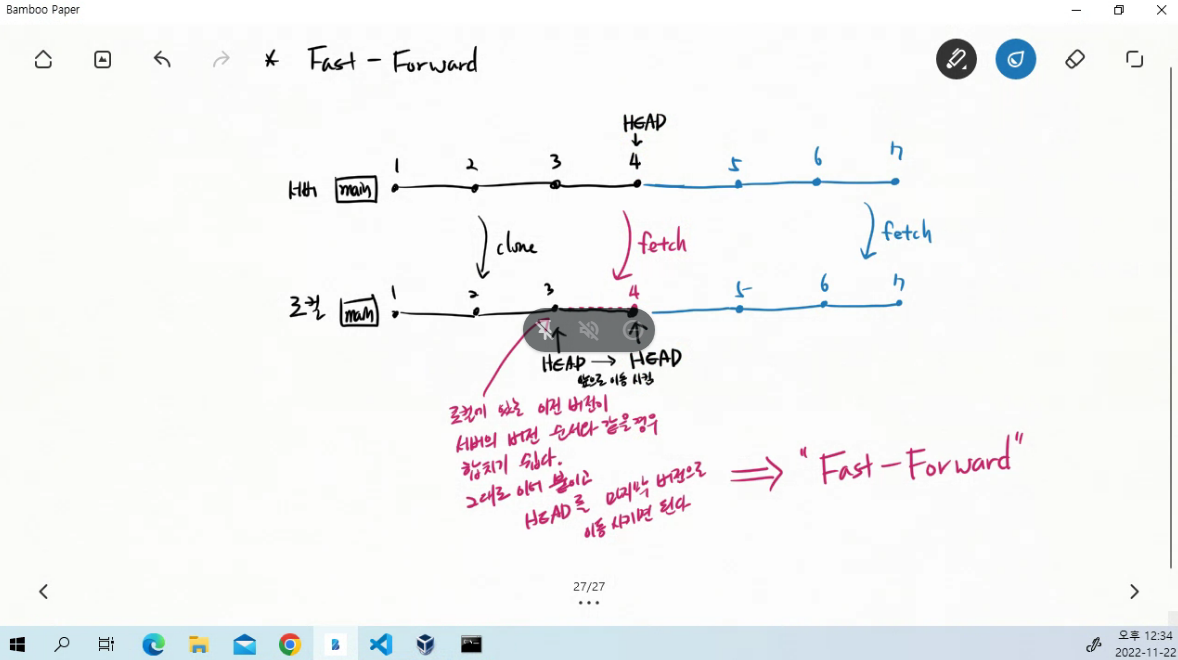 Bamboo Paper
* Fast - Forward
HEAD
1 2 3 4 5 6 7
서버 main
clone fetch fetch
1 2 3 4 5 6 7
로컬 main
HEAD → HEAD
앞으로 이동 시킴
로컬에 있는 이전 버전이
서버의 버전 순서와 같을 경우
합치기 쉽다.
그대로 이어 붙이고
HEAD를 마지막 버전으로
이동 시키면 된다
⇒ "Fast - Forward"
27/27
오후 12:34
2022-11-22